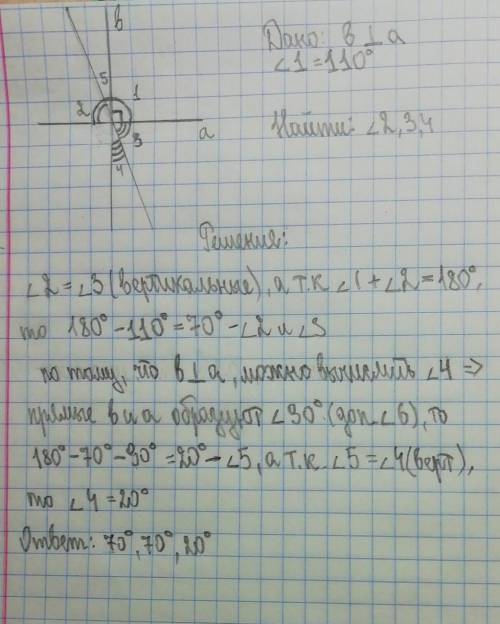 в
Дано: в ⊥ a
∠1 = 110°
5
2 1
a
3
4
Найти: ∠2,3,4
Решение:
∠2 = ∠3 (вертикальные), а т.к ∠1 + ∠2 = 180°,
то 180° - 110° = 70° - ∠2 и ∠3
по тому, что в ⊥ a, можно вычислить ∠4 =>
прямые в и а образуют ∠90° (доп. ∠6), то
180° - 70° - 90° = 20° - ∠5, а т.к. ∠5 = ∠4 (верт),
то ∠4 = 20°
Ответ: 70°, 70°, 20°